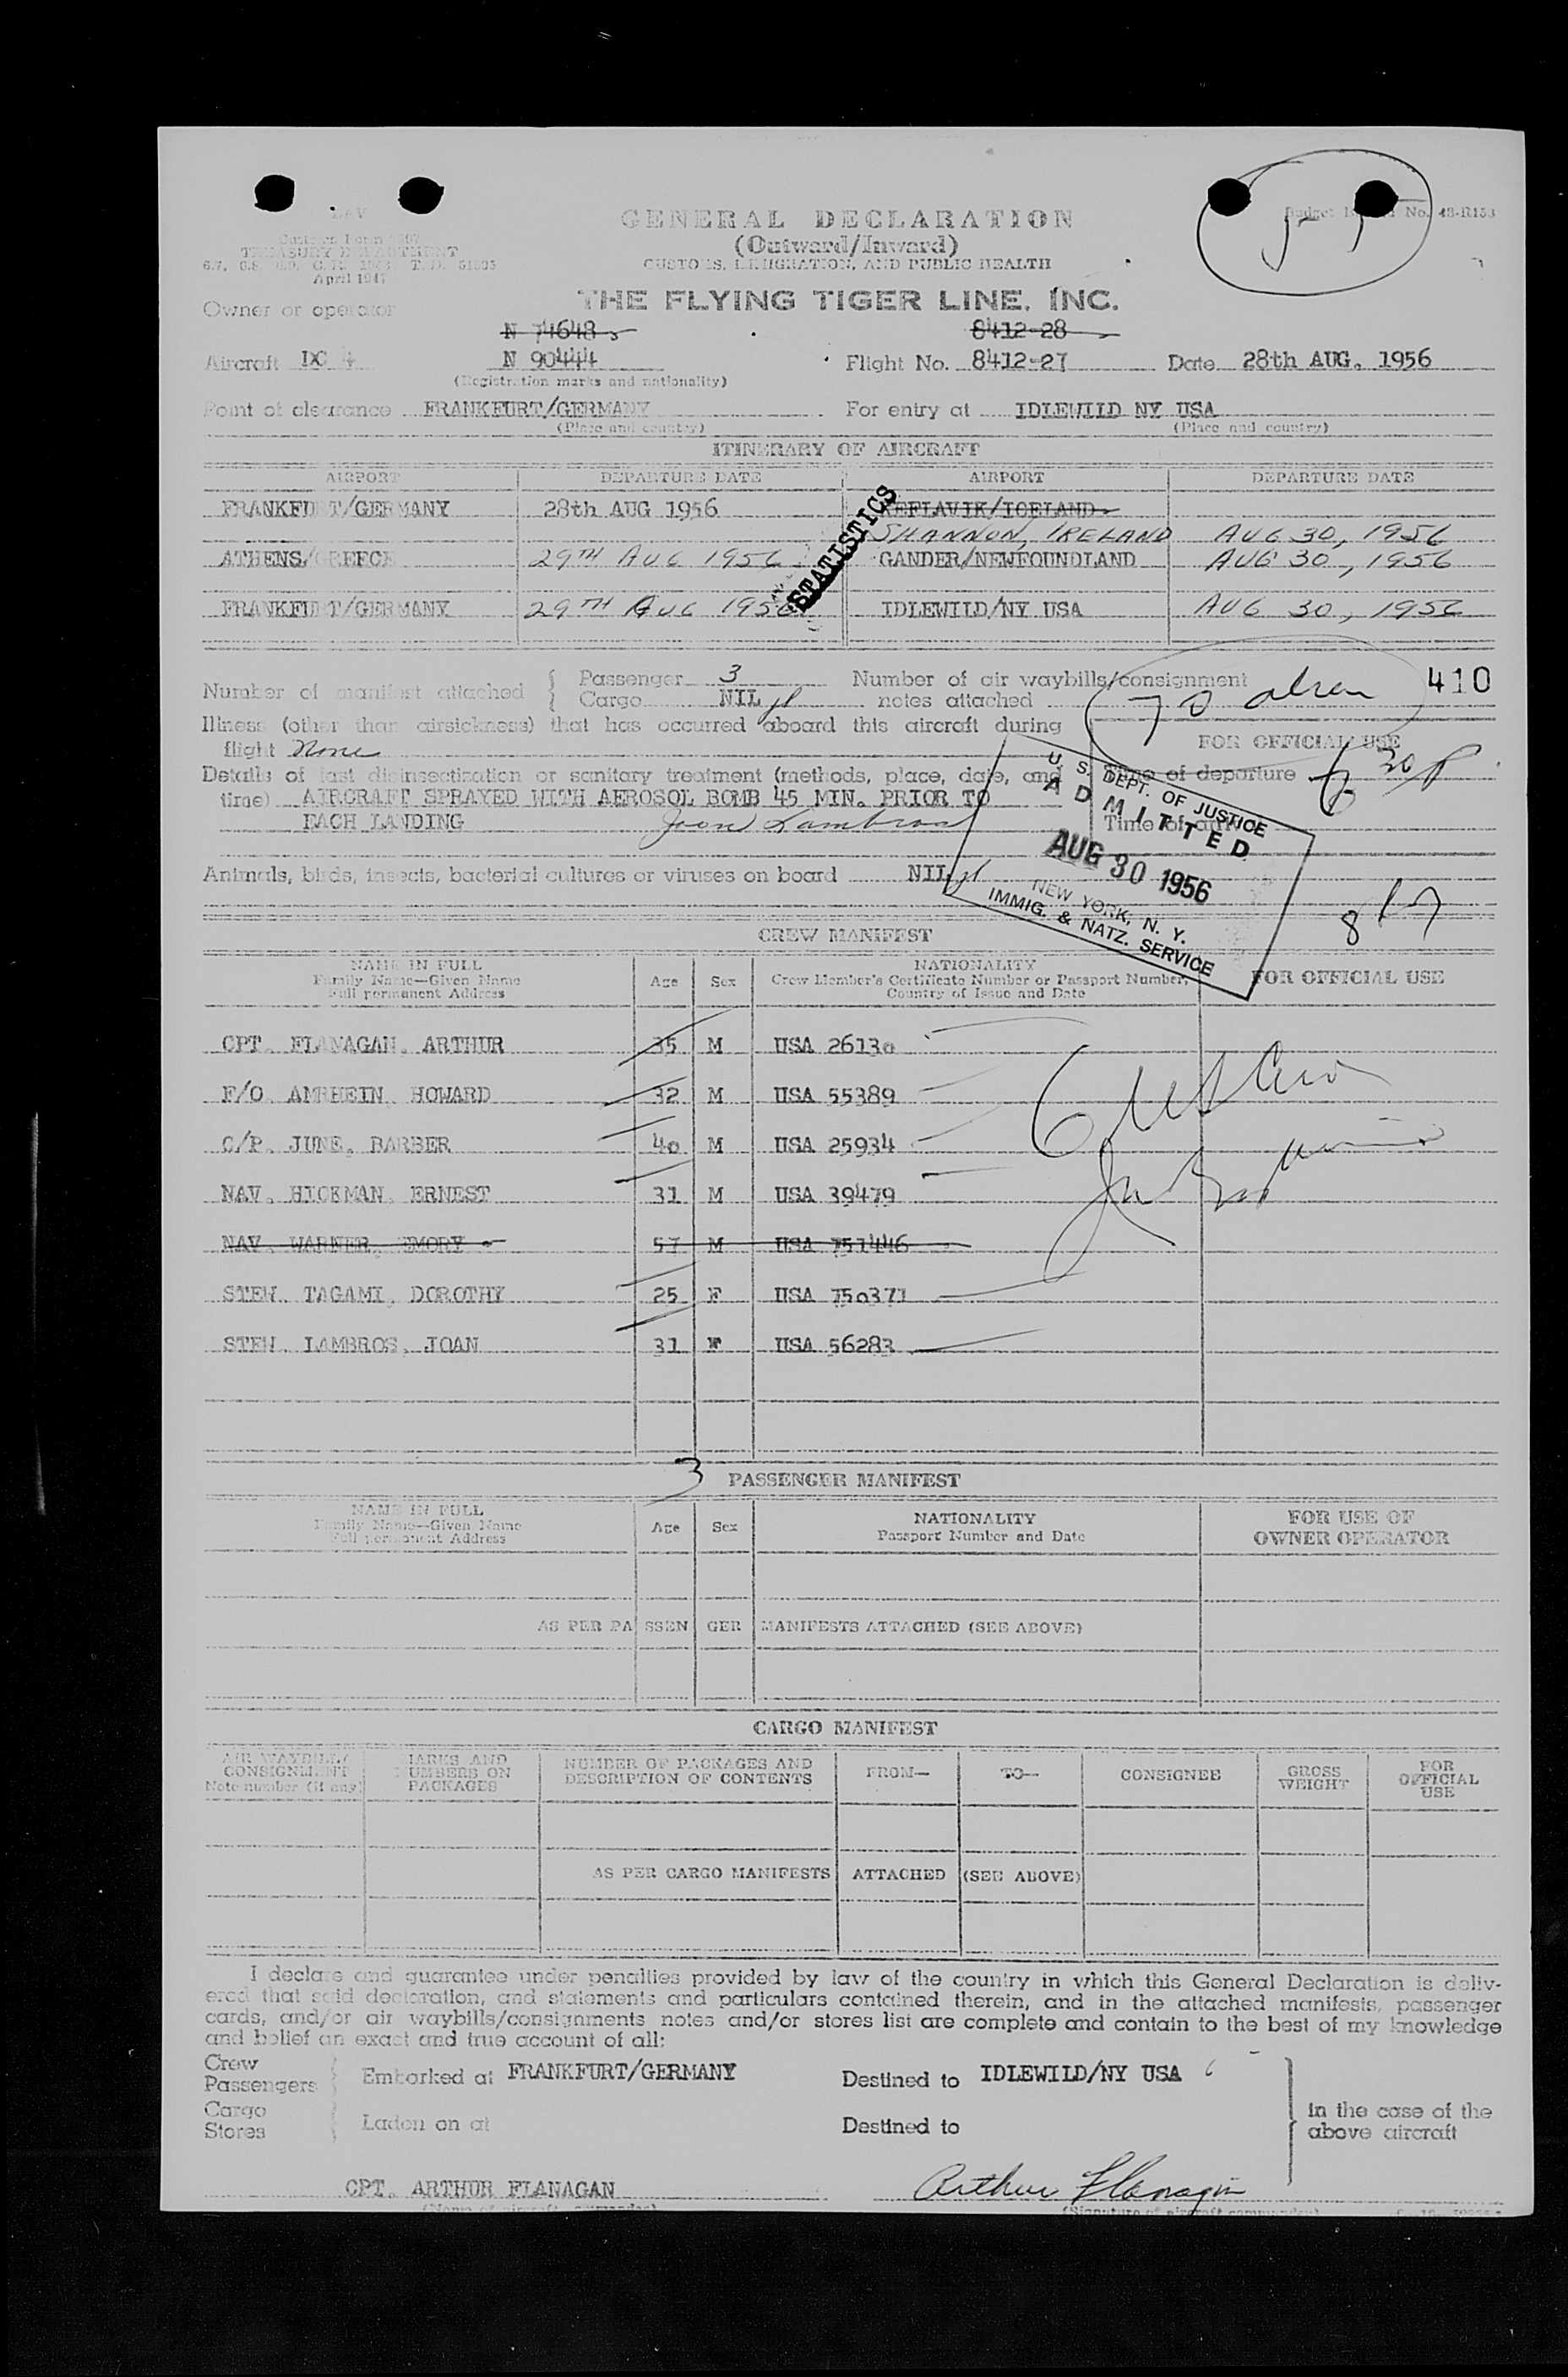 GENERAL DECLARATION
(Outward/Inward)
CUSTOMS, IMMIGRATION, AND PUBLIC HEALTH
TREASURY DEPARTMENT
April 1947
No. 48-R153
THE FLYING TIGER LINE, INC.
Owner or operator
N 74648
8412-28
Aircraft DC 4 N 90444 Flight No. 8412-27 Date 28th AUG. 1956
(Registration marks and nationality)
Point of clearance FRANKFURT/GERMANY For entry at IDLEWILD NY USA
(Place and country) (Place and country)
ITINERARY OF AIRCRAFT
AIRPORT DEPARTURE DATE AIRPORT DEPARTURE DATE
FRANKFURT/GERMANY 28th AUG 1956 KEFLAVIK/ICELAND
SHANNON, IRELAND AUG 30, 1956
ATHENS/GREECE 29TH AUG 1956 GANDER/NEWFOUNDLAND AUG 30, 1956
FRANKFURT/GERMANY 29TH AUG 1956 IDLEWILD/NY USA AUG 30, 1956
STATISTICS
Number of manifest attached Passenger 3 Number of air waybills/consignment
Cargo NIL notes attached
410
Illness (other than airsickness) that has occurred aboard this aircraft during
flight None
FOR OFFICIAL USE
Details of last disinsectization or sanitary treatment (methods, place, date, and
time) AIRCRAFT SPRAYED WITH AEROSOL BOMB 45 MIN. PRIOR TO
EACH LANDING Joan Lambros
Time of departure
Time of
U. S. DEPT. OF JUSTICE
ADMITTED
AUG 30 1956
NEW YORK, N. Y.
IMMIG. & NATZ. SERVICE
Animals, birds, insects, bacterial cultures or viruses on board NIL
CREW MANIFEST
NAME IN FULL
Family Name—Given Name
Full permanent Address
Age Sex
NATIONALITY
Crew Member's Certificate Number or Passport Number,
Country of Issue and Date
FOR OFFICIAL USE
CPT. FLANAGAN, ARTHUR 35 M USA 26130
F/O AMRHEIN, HOWARD 32 M USA 55389
C/P. JUNE, BARBER 40 M USA 25934
NAV. HICKMAN, ERNEST 31 M USA 39479
NAV. WARNER, EMORY 57 M USA 751446
STEW. TAGAMI, DOROTHY 25 F USA 750371
STEW. LAMBROS, JOAN 31 F USA 56283
3 PASSENGER MANIFEST
NAME IN FULL
Family Name—Given Name
Full permanent Address
Age Sex
NATIONALITY
Passport Number and Date
FOR USE OF
OWNER OPERATOR
AS PER PASSENGER MANIFESTS ATTACHED (SEE ABOVE)
CARGO MANIFEST
AIR WAYBILL/
CONSIGNMENT
Note number (if any)
MARKS AND
NUMBERS ON
PACKAGES
NUMBER OF PACKAGES AND
DESCRIPTION OF CONTENTS
FROM— TO— CONSIGNEE
GROSS
WEIGHT
FOR
OFFICIAL
USE
AS PER CARGO MANIFESTS ATTACHED (SEE ABOVE)
I declare and guarantee under penalties provided by law of the country in which this General Declaration is deliv-
ered that said declaration, and statements and particulars contained therein, and in the attached manifests, passenger
cards, and/or air waybills/consignments notes and/or stores list are complete and contain to the best of my knowledge
and belief an exact and true account of all:
Crew
Passengers Embarked at FRANKFURT/GERMANY Destined to IDLEWILD/NY USA
Cargo
Stores Laden on at Destined to
In the case of the
above aircraft
CPT. ARTHUR FLANAGAN Arthur Flanagan
(Name of aircraft commander) (Signature of aircraft commander)